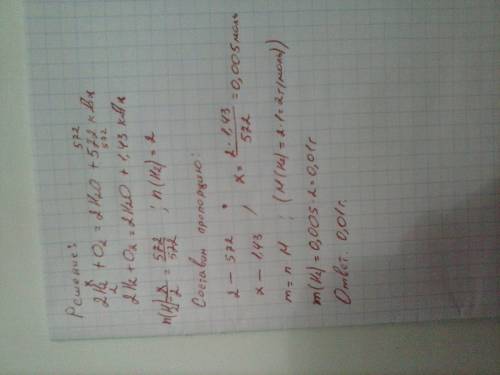 Решение:
572
2H₂ + O₂ = 2H₂O + 572 кДж
2 572
2H₂ + O₂ = 2H₂O + 1,43 кДж
n(H₂) x/2 = 572/572 ; n(H₂) = 2
Составим пропорцию:
2 – 572
x – 1,43 , x = 2 · 1,43 / 572 = 0,005 моль
m = n · M ; (M(H₂) = 2 · 1 = 2 г/моль))
m(H₂) = 0,005 · 2 = 0,01 г
Ответ: 0,01 г.